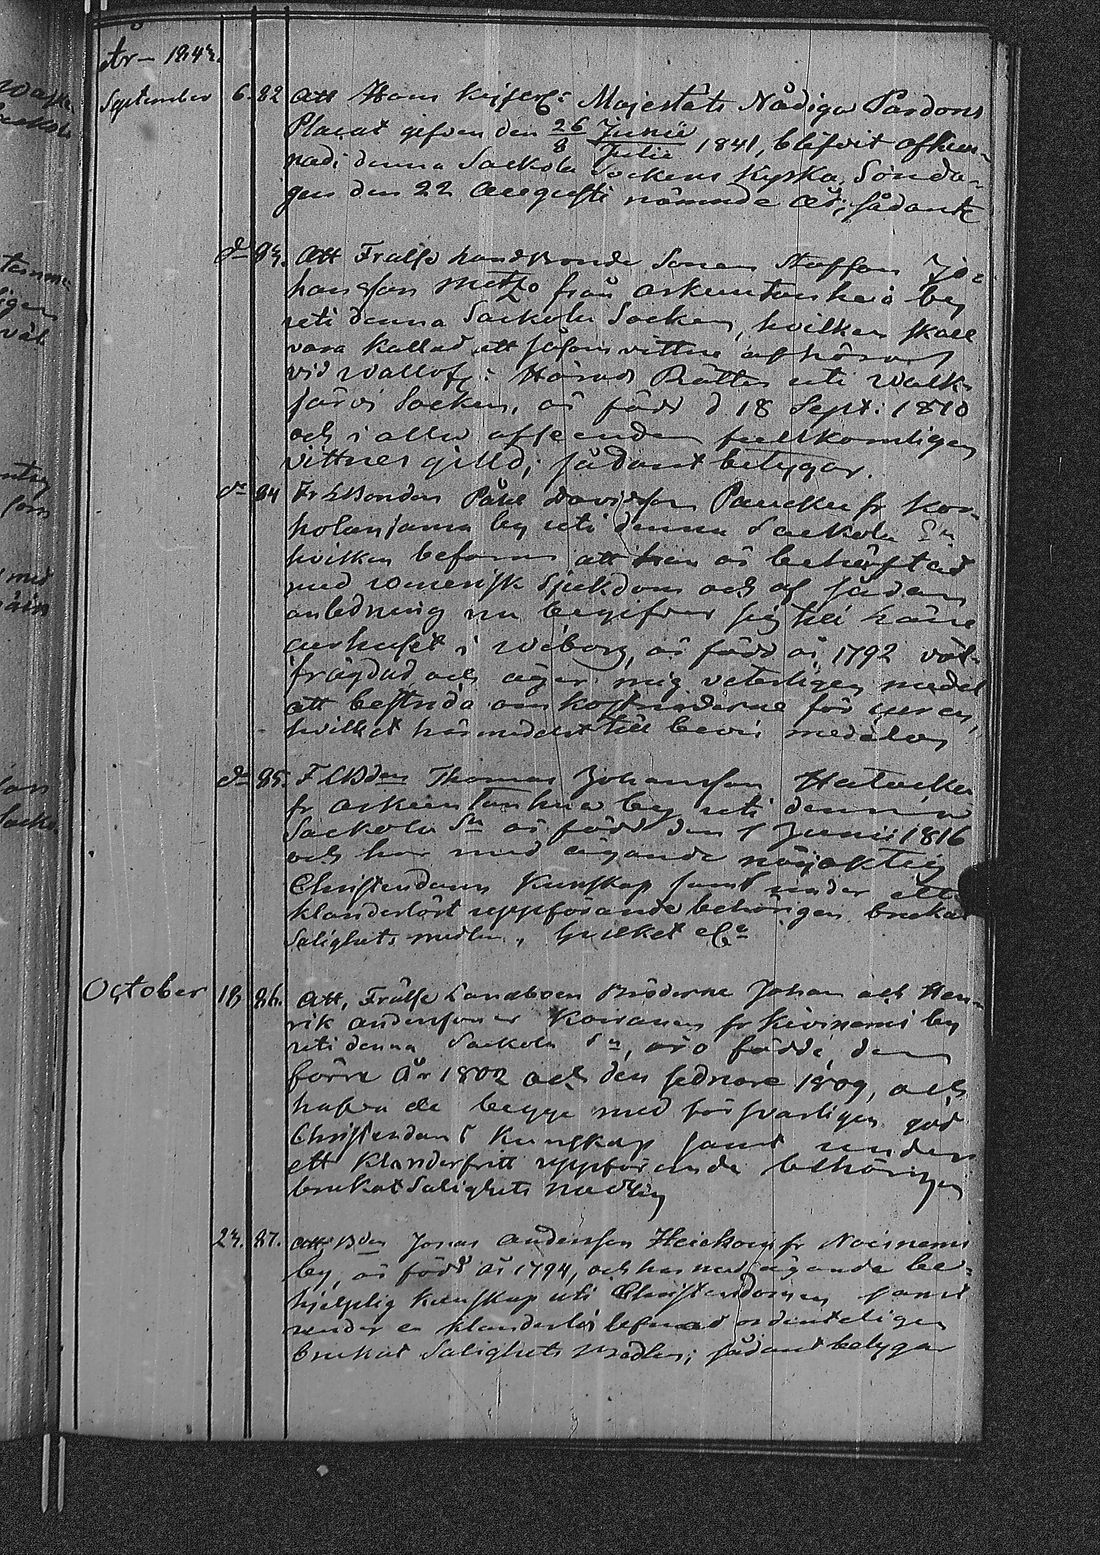 År 1843.
September 6. 82 Att Hans Kejserl: Majestäts Nådiga Pardons
Placat gifven den 26/8 Junii/Julii 1841, blifvit afkun-
nadt i denna Sackola Sockens Kyrka, Sönda-
gen den 22 Augusti nämnde år; sådant
do 83. Att Frälse landbonde Sonen Staffan Jo-
hansson från by
uti denna Sackola Socken, hvilken skall
vara kallad att såsom vittne afhöras
vid Wällofl: Härads Rätten uti Walk-
järvi Socken, är född d 18 Sept. 1810
och i allo afseenden fullkomligen
vittnes gilld; sådant betygar.
do 84 Fr LBonden Påhl Davidsson fr
by uti denna Sackola Sn
hvilken befarar att han är behäftad
med venerisk Sjukdom och af sådan
anledning nu begifver sig till
curhuset i Wiborg, är född år 1792 väl
frägdad och äger mig veterligen medel
att bestrida omkostnaderne för curen,
hvilket härmedelst till bevis meddelas
do 85. FLBden Thomas Johansson
fr by uti denna
Sackola Sn är född den 1 Junii 1816
och har med ägande nöjaktig
Christendoms Kunskap samt under ett
klanderlöst uppförande behörigen brukat
Salighets medlen, hvilket etc
October 18 86. Att, Frälse Landboen Bröderne Johan och Hen-
rik Anderssöner fr Kivinemi by
uti denna Sackola Sn, äro födde, den
förre År 1802 och den sednare 1809, och
hafva de begge med försvarligen god
Christendoms Kunskap samt under
ett klanderfritt uppförande behörigen
brukat Salighets medlen
23. 87. Att Bden Jonas Andersson fr
by, är född år 1794, och har med ägande be-
hjelplig Kunskap uti Christendomen samt
under en klanderlös lefnad ordenteligen
brukat Salighets Medlen; sådant betygar